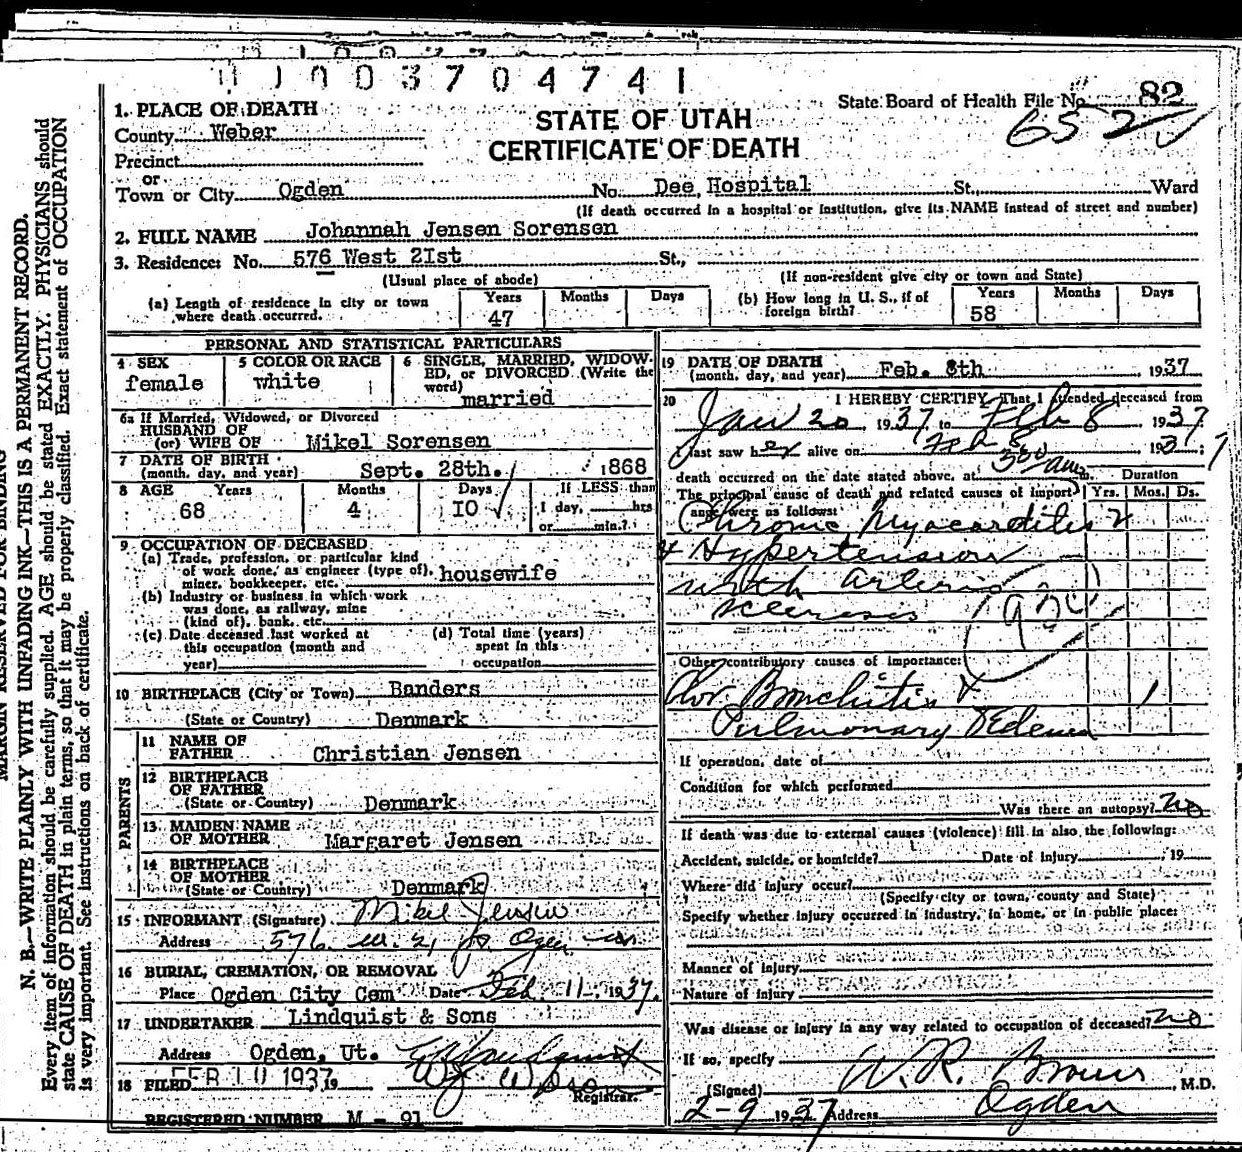 0 1 0 0 3 7 0 4 7 4 1
State Board of Health File No. 82
652
STATE OF UTAH
CERTIFICATE OF DEATH
1. PLACE OF DEATH
County Weber
Precinct
or
Town or City Ogden No. Dee Hospital St., Ward
(If death occurred in a hospital or institution, give its NAME instead of street and number)
2. FULL NAME Johannah Jensen Sorensen
3. Residence: No. 576 West 2Ist St.,
(Usual place of abode) (If non-resident give city or town and State)
(a) Length of residence in city or town where death occurred. Years 47 Months Days
(b) How long in U. S., if of foreign birth? Years 58 Months Days
PERSONAL AND STATISTICAL PARTICULARS
4 SEX female
5 COLOR OR RACE white
6 SINGLE, MARRIED, WIDOW-
ED, or DIVORCED (Write the
word) married
6a If Married, Widowed, or Divorced
HUSBAND OF
(or) WIFE OF Mikel Sorensen
7 DATE OF BIRTH
(month, day, and year) Sept. 28th. 1868
8 AGE Years Months Days If LESS than
68 4 IO 1 day, hrs
or min.?
9 OCCUPATION OF DECEASED
(a) Trade, profession, or particular kind
of work done, as engineer (type of),
miner, bookkeeper, etc. housewife
(b) Industry or business in which work
was done, as railway, mine
(kind of), bank, etc.
(c) Date deceased last worked at
this occupation (month and
year)
(d) Total time (years)
spent in this
occupation
10 BIRTHPLACE (City or Town) Randers
(State or Country) Denmark
PARENTS
11 NAME OF
FATHER Christian Jensen
12 BIRTHPLACE
OF FATHER
(State or Country) Denmark
13 MAIDEN NAME
OF MOTHER Margaret Jensen
14 BIRTHPLACE
OF MOTHER
(State or Country) Denmark
15 INFORMANT (Signature) Mikel Jensen
Address 576 W. 21 Ogden
16 BURIAL, CREMATION, OR REMOVAL
Place Ogden City Cem Date Feb. 11 1937.
17 UNDERTAKER Lindquist & Sons
Address Ogden, Ut.
18 FILED FEB 10 1937, 19
Registrar.
REGISTERED NUMBER M - 91
19 DATE OF DEATH
(month, day, and year) Feb. 8th 1937
20 I HEREBY CERTIFY, That I attended deceased from
Jan 20 1937, to Feb 8 1937.
I last saw her alive on Feb 8 1937;
death occurred on the date stated above, at 3 00 am m.
The principal cause of death and related causes of import-
ance were as follows: Duration
Yrs. Mos. Ds.
Chronic Myocarditis 2
& Hypertension
with Arterio
sclerosis
Other contributory causes of importance:
Chr. Bronchitis & 1
Pulmonary Edema
If operation, date of
Condition for which performed
Was there an autopsy? no
If death was due to external causes (violence) fill in also the following:
Accident, suicide, or homicide? Date of injury , 19
Where did injury occur?
(Specify city or town, county and State)
Specify whether injury occurred in industry, in home, or in public place:
Manner of injury
Nature of injury
Was disease or injury in any way related to occupation of deceased? no
If so, specify
(Signed) W. R. Brown, M.D.
2-9 1937 Address Ogden
MARGIN RESERVED FOR BINDING
N. B.—WRITE PLAINLY WITH UNFADING INK—THIS IS A PERMANENT RECORD.
Every item of information should be carefully supplied. AGE should be stated EXACTLY. PHYSICIANS should
state CAUSE OF DEATH in plain terms, so that it may be properly classified. Exact statement of OCCUPATION
is very important. See instructions on back of certificate.